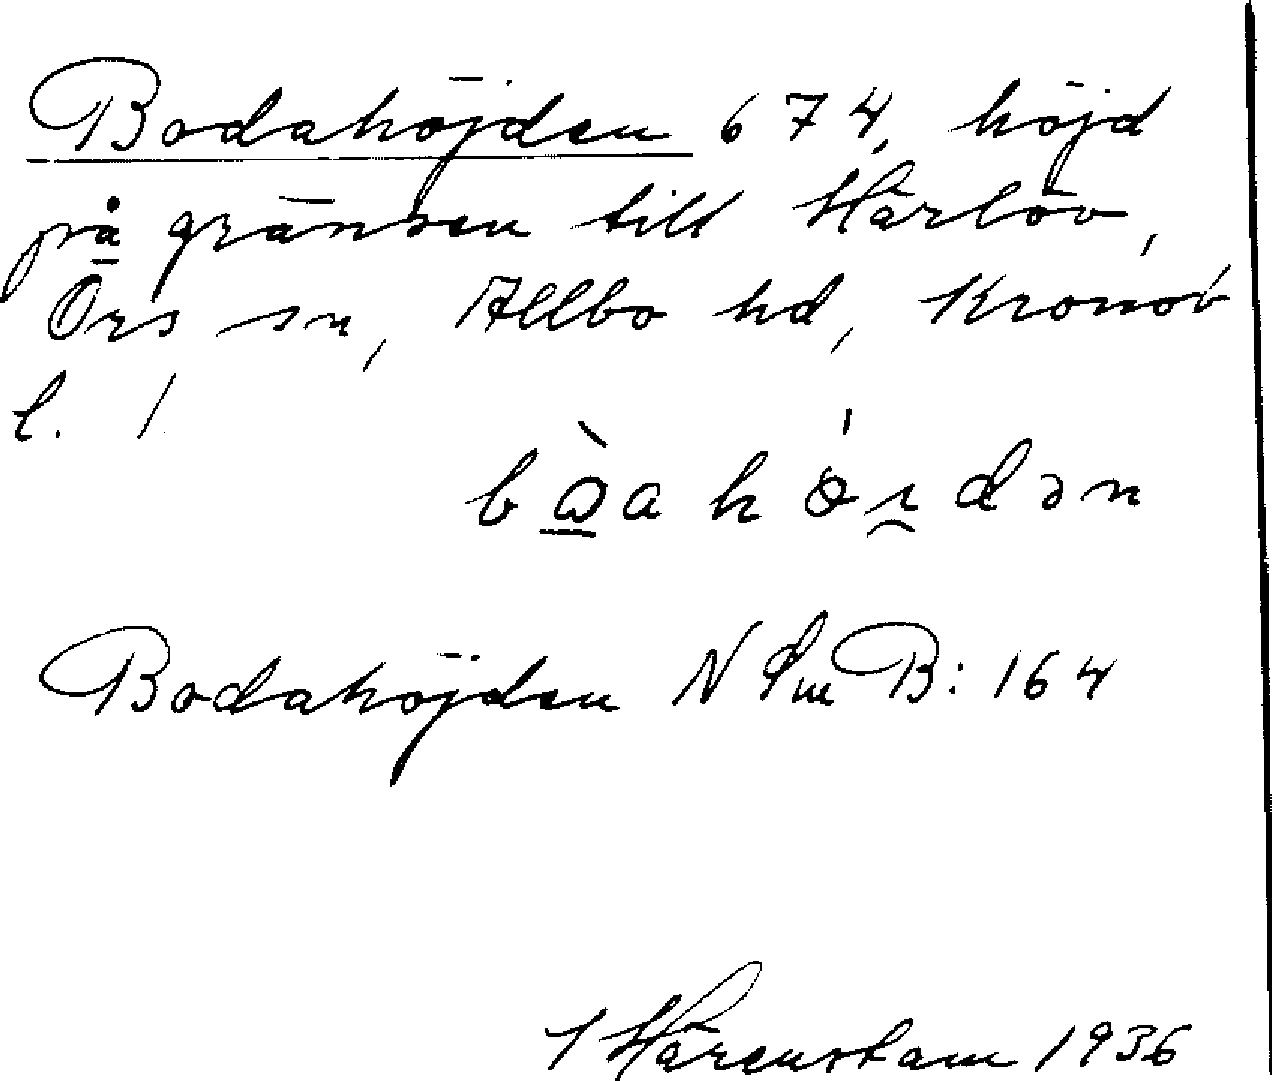 Bodahöjden 674, höjd
på gränsen till Härlöv,
Örs sn, Allbo hd, Kronob
l. /
bɷ̀a hǿɪdən
Bodahöjden N Sm B: 164
I Härenstam 1936